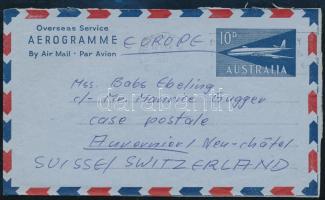 Overseas Service
AEROGRAMME
By Air Mail · Par Avion
EUROPE
10D
AUSTRALIA
Mss. Babs Ebeling
c/- Mr. Maurice Gugger
case postale
Auvernier / Neu-châtel
SUISSE / SWITZERLAND
darabanth